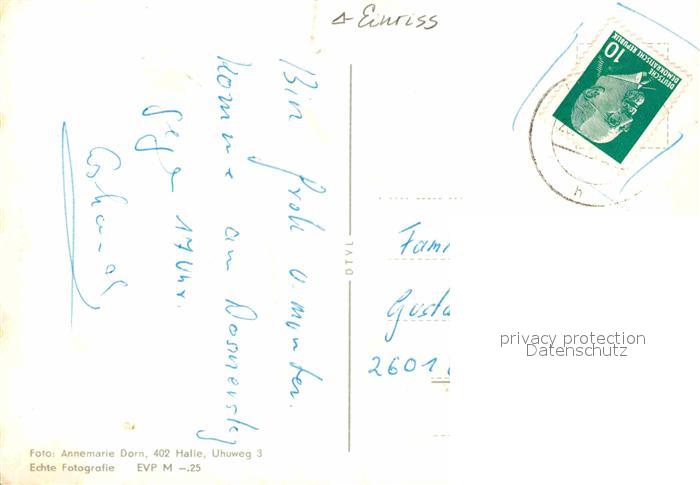 Einriss
10
DEUTSCHE
DEMOKRATISCHE REPUBLIK
Bin froh u. munter.
Komme am Donnerstag
gegen 17 Uhr.
Fami
Gusta
2601
privacy protection
Datenschutz
Foto: Annemarie Dorn, 402 Halle, Uhuweg 3
Echte Fotografie EVP M –.25